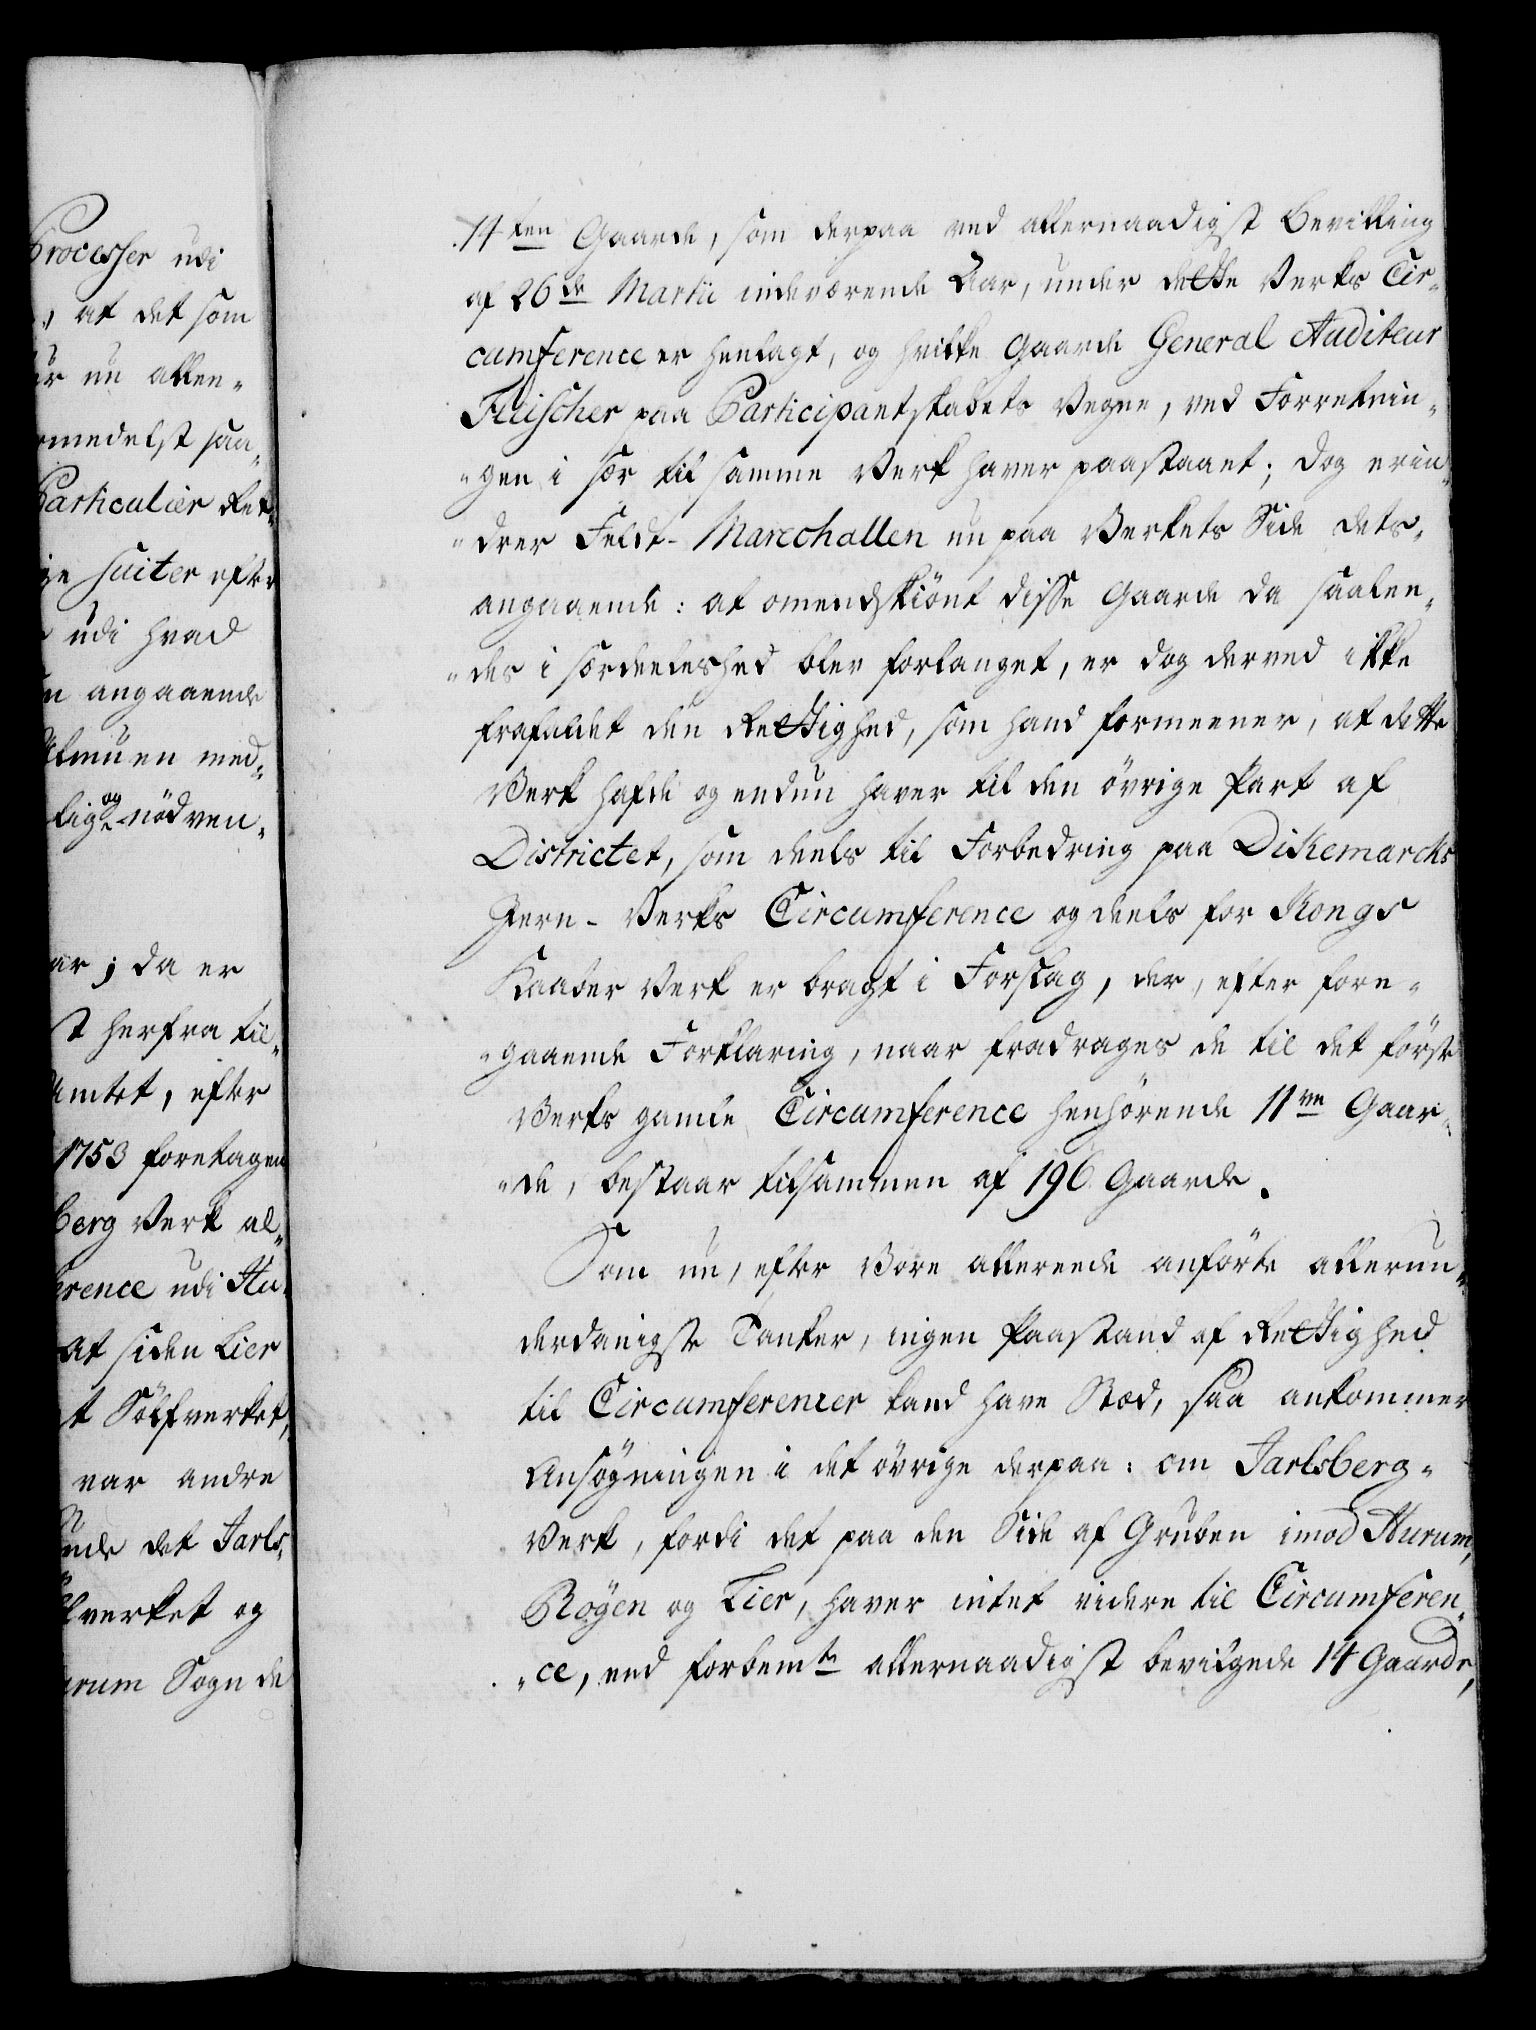 Processer udi
at det som
er nu allen-
medelst saa-
Particulier Ret-
ge suiter efter
udi hvad
angaaende
Almuen med-
lig og nödven-
ar; da er
t herfra til-
Amtet, efter
1753 foretagen
berg Verk al-
erence udi Hu-
at siden Lier
t Sölfverket,
var andre
nde det Jarls-
lverket og
urum Sogn de
14ten Gaarde, som derpaa ved allernaadigst Bevilling
af 26de Martii indeværende Aar, under dette Verks Cir-
cumference er henlagt, og hvilke Gaarde General Auditeur
Fleischer paa Participantskabets Vegne, ved Forretnin-
gen i sær til samme Verk haver paastaaet; dog erin-
drer Feldt-Marechallen nu paa Verkets Side dets-
angaaende: at omendskiönt disse Gaarde da saalen-
des i særdeeleshed blev forlanget, er dog derved ikke
frafaldet den Rettighed, som hand formeener, at dette
Verk hafde og endnu haver til den övrige Part af
Districtet, som deels til Forbedring paa Dikemarcks
Jern-Verks Circumference og deels for Kongs
Kaaber Verk er bragt i Forslag, der, efter fore-
gaaende Forklaring, naar fradrages de til det förste
Verks gamle Circumference henhörende 11ve Gaar-
de, bestaar tilsammen af 196 Gaarde.
Som nu, efter Vore allereede anförte allerun-
derdanigste Tanker, ingen Paastand af Rettighed
til Circumferencer kand have Stæd, saa ankommer
Ansögningen i det övrige derpaa: om Jarlsberg-
Verk, fordi det paa den Side af Gruben imod Hurum,
Röyen og Lier, haver intet videre til Circumferen-
ce, end forbemte allernaadigst bevilgede 14 Gaarde,